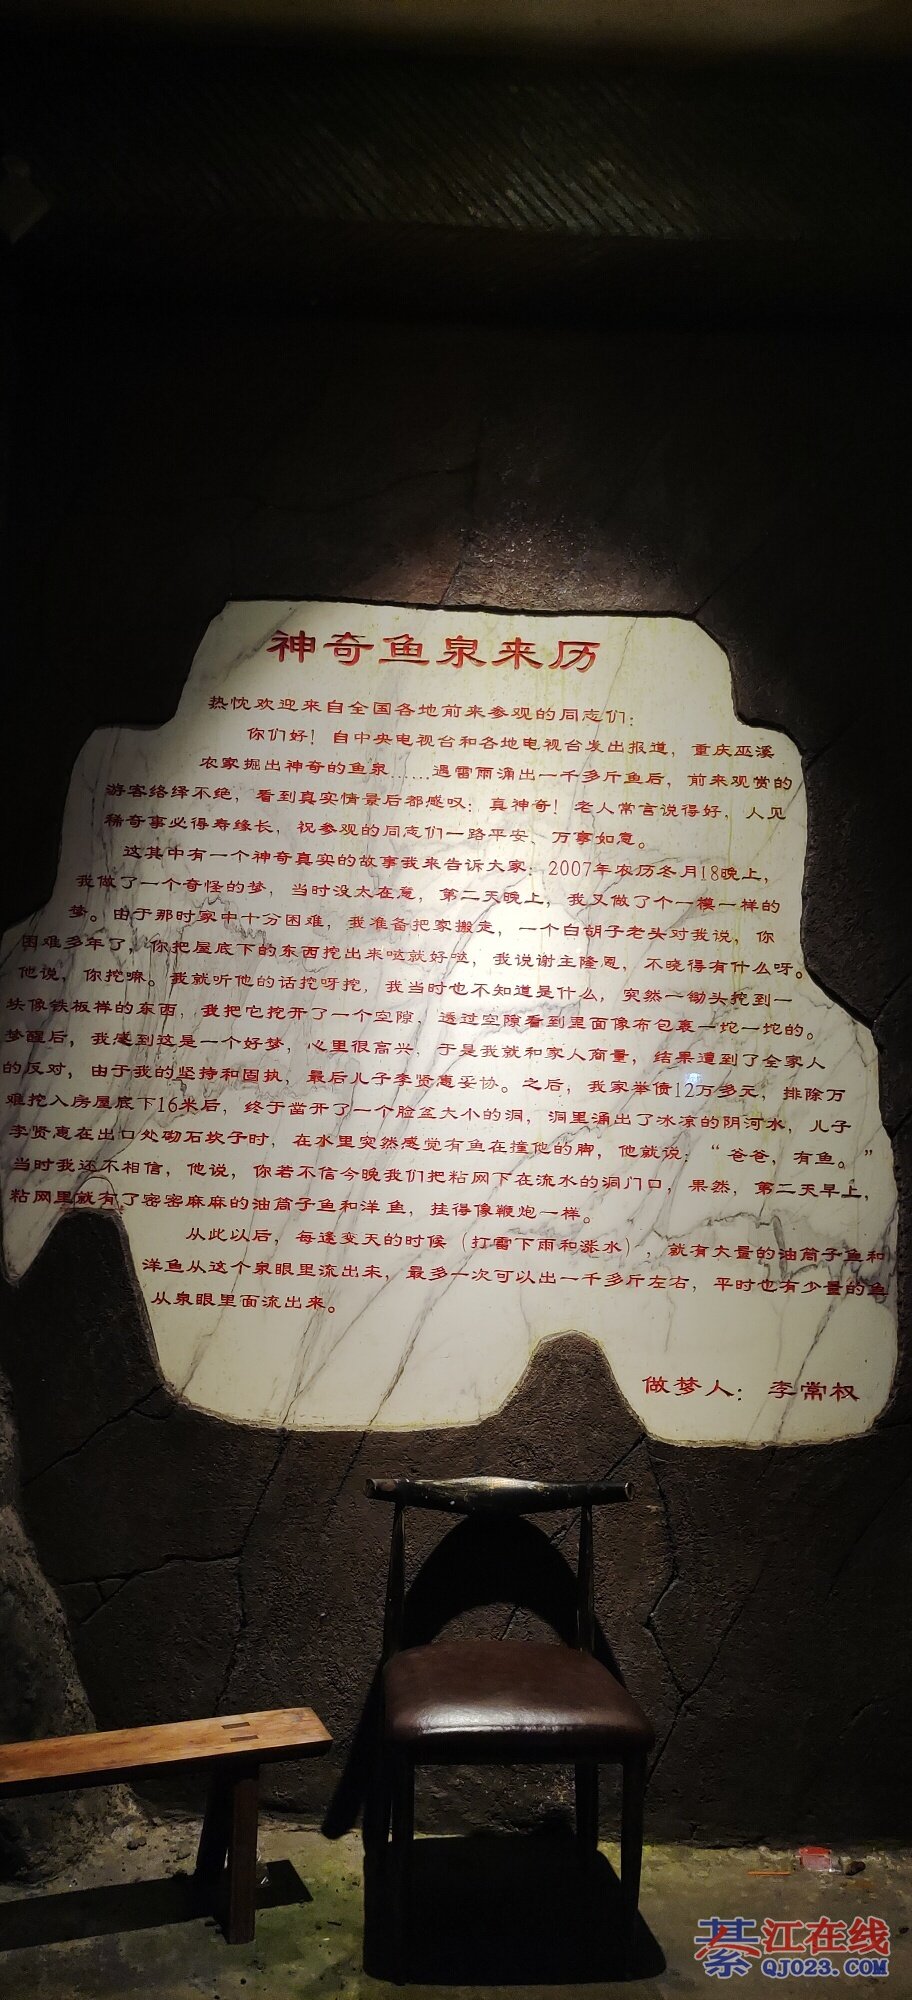 神奇鱼泉来历
热忱欢迎来自全国各地前来参观的同志们：
你们好！自中央电视台和各地电视台发出报道，重庆巫溪
农家掘出神奇的鱼泉……遇雷雨涌出一千多斤鱼后，前来观赏的
游客络绎不绝，看到真实情景后都感叹：真神奇！老人常言说得好，人见
稀奇事必得寿缘长，祝参观的同志们一路平安、万事如意。
这其中有一个神奇真实的故事我来告诉大家：2007年农历冬月18晚上，
我做了一个奇怪的梦，当时没太在意，第二天晚上，我又做了个一模一样的
梦。由于那时家中十分困难，我准备把家搬走，一个白胡子老头对我说，你
困难多年了，你把屋底下的东西挖出来哒就好哒，我说谢主隆恩，不晓得有什么呀。
他说，你挖嘛。我就听他的话挖呀挖，我当时也不知道是什么，突然一锄头挖到一
块像铁板样的东西，我把它挖开了一个空隙，透过空隙看到里面像布包裹一坨一坨的。
梦醒后，我感到这是一个好梦，心里很高兴，于是我就和家人商量，结果遭到了全家人
的反对，由于我的坚持和固执，最后儿子李贤惠妥协。之后，我家举债12万多元，排除万
难挖入房屋底下16米后，终于凿开了一个脸盆大小的洞，洞里涌出了冰凉的阴河水，儿子
李贤惠在出口处砌石坎子时，在水里突然感觉有鱼在撞他的脚，他就说：“爸爸，有鱼。”
当时我还不相信，他说，你若不信今晚我们把粘网下在流水的洞门口，果然，第二天早上，
粘网里就有了密密麻麻的油筒子鱼和洋鱼，挂得像鞭炮一样。
从此以后，每逢变天的时候（打雷下雨和涨水），就有大量的油筒子鱼和
洋鱼从这个泉眼里流出来，最多一次可以出一千多斤左右，平时也有少量的鱼
从泉眼里面流出来。
做梦人：李常权
綦江在线
QJ023.COM